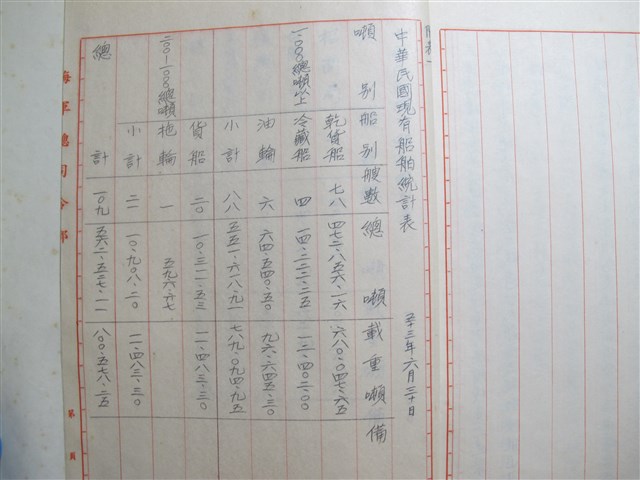 中華民國現有船舶統計表 五十三年六月三十日
噸別 船別 艘數 總噸 載重噸 備
一〇〇總噸以上 乾貨船 七八 四七二.八五六.一六 六八〇.〇四七.六五
冷藏船 四 一四.二二二.二五 一二.四〇二.〇〇
油輪 六 六四.五四〇.五〇 九六.六四五.三〇
小計 八八 五五一.六一八.九一 七八九.〇九四.九五
二〇-一〇〇總噸 貨船 二〇 一〇.三一一.五三 一一.四八三.三〇
拖輪 一 五九六.六七
小計 二一 一〇.九〇八.二〇 一一.四八三.三〇
總計 一〇九 五六二.五二七.一一 八〇〇.五七八.二五
海軍總司令部 第 頁